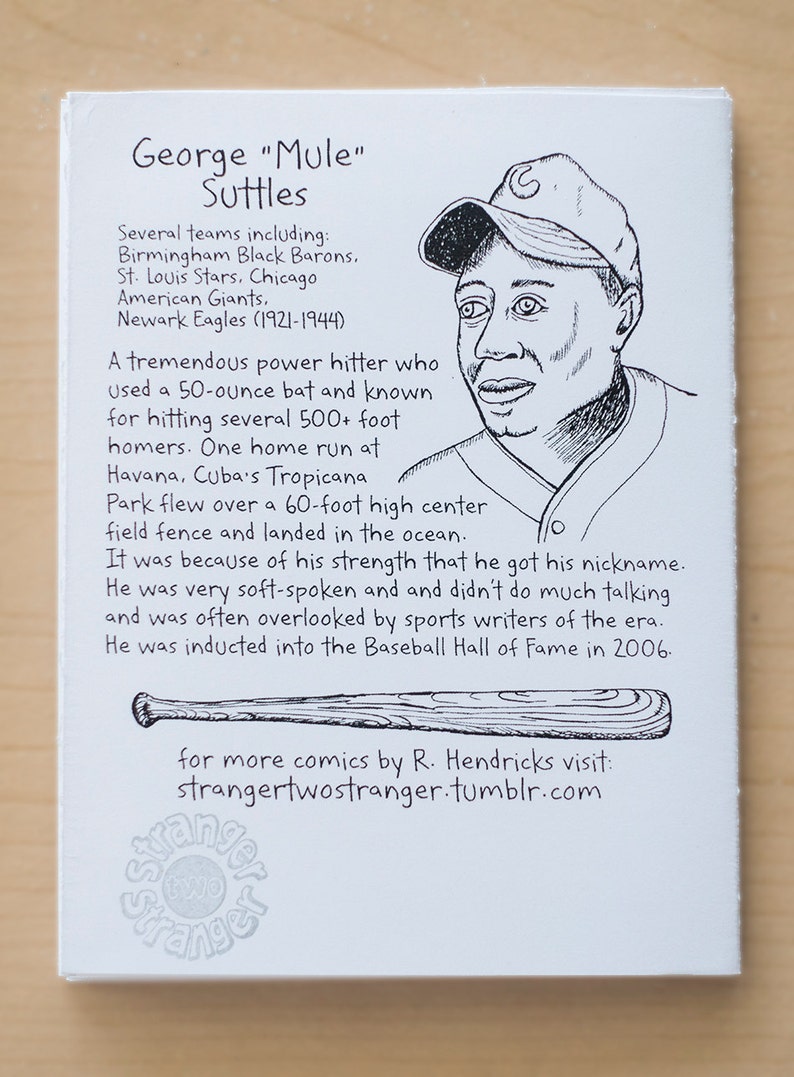 George "Mule"
Suttles
Several teams including:
Birmingham Black Barons,
St. Louis Stars, Chicago
American Giants,
Newark Eagles (1921-1944)
A tremendous power hitter who
used a 50-ounce bat and known
for hitting several 500+ foot
homers. One home run at
Havana, Cuba's Tropicana
Park flew over a 60-foot high center
field fence and landed in the ocean.
It was because of his strength that he got his nickname.
He was very soft-spoken and and didn't do much talking
and was often overlooked by sports writers of the era.
He was inducted into the Baseball Hall of Fame in 2006.
for more comics by R. Hendricks visit:
strangertwostranger.tumblr.com
stranger
two
stranger
C